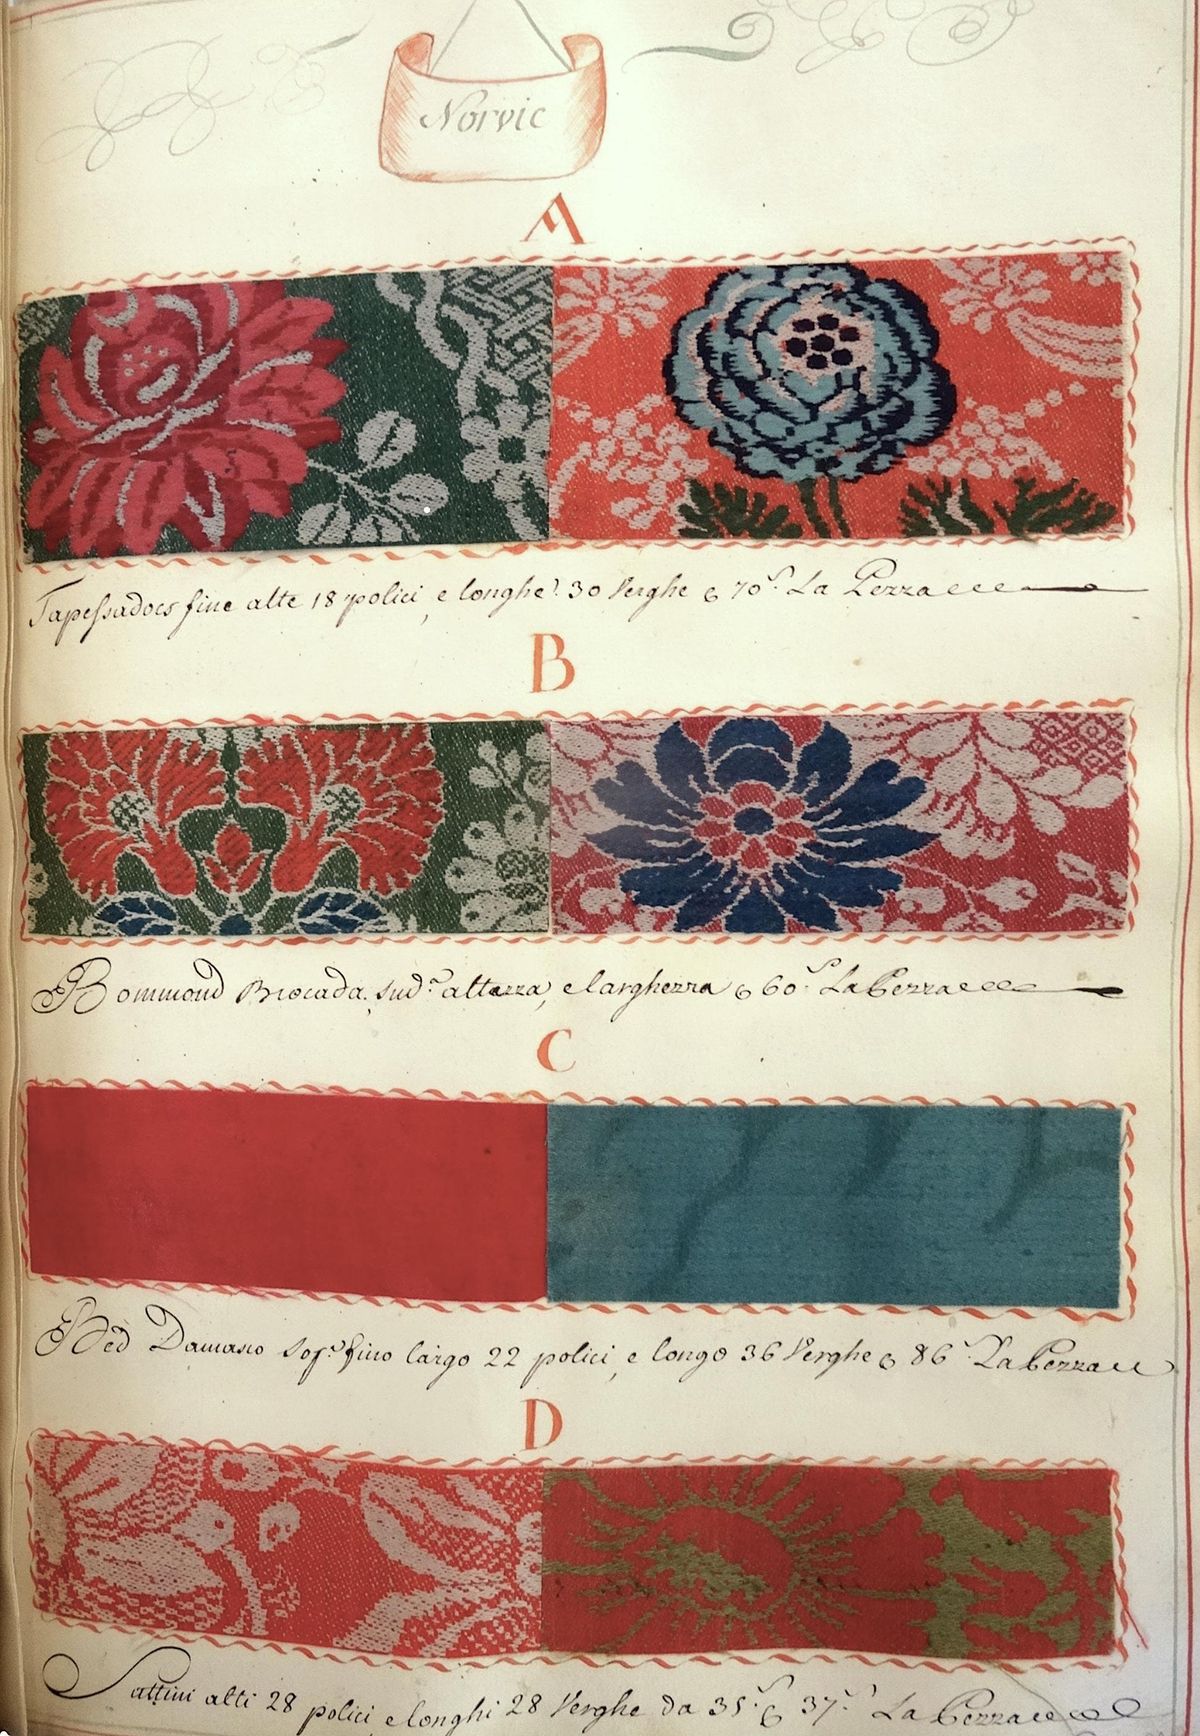 Norvic
A
Tapessadocs fine alte 18 polici, e longhe 30 Verghe 70 La Pezza
B
Bommond Brocada sud.ª altezza, e larghezza 60 La Pezza
C
Bed Damasco fino largo 22 polici, e longo 36 Verghe 86 La Pezza
D
Sattini alti 28 polici e longhi 28 Verghe da 35 37 La Pezza